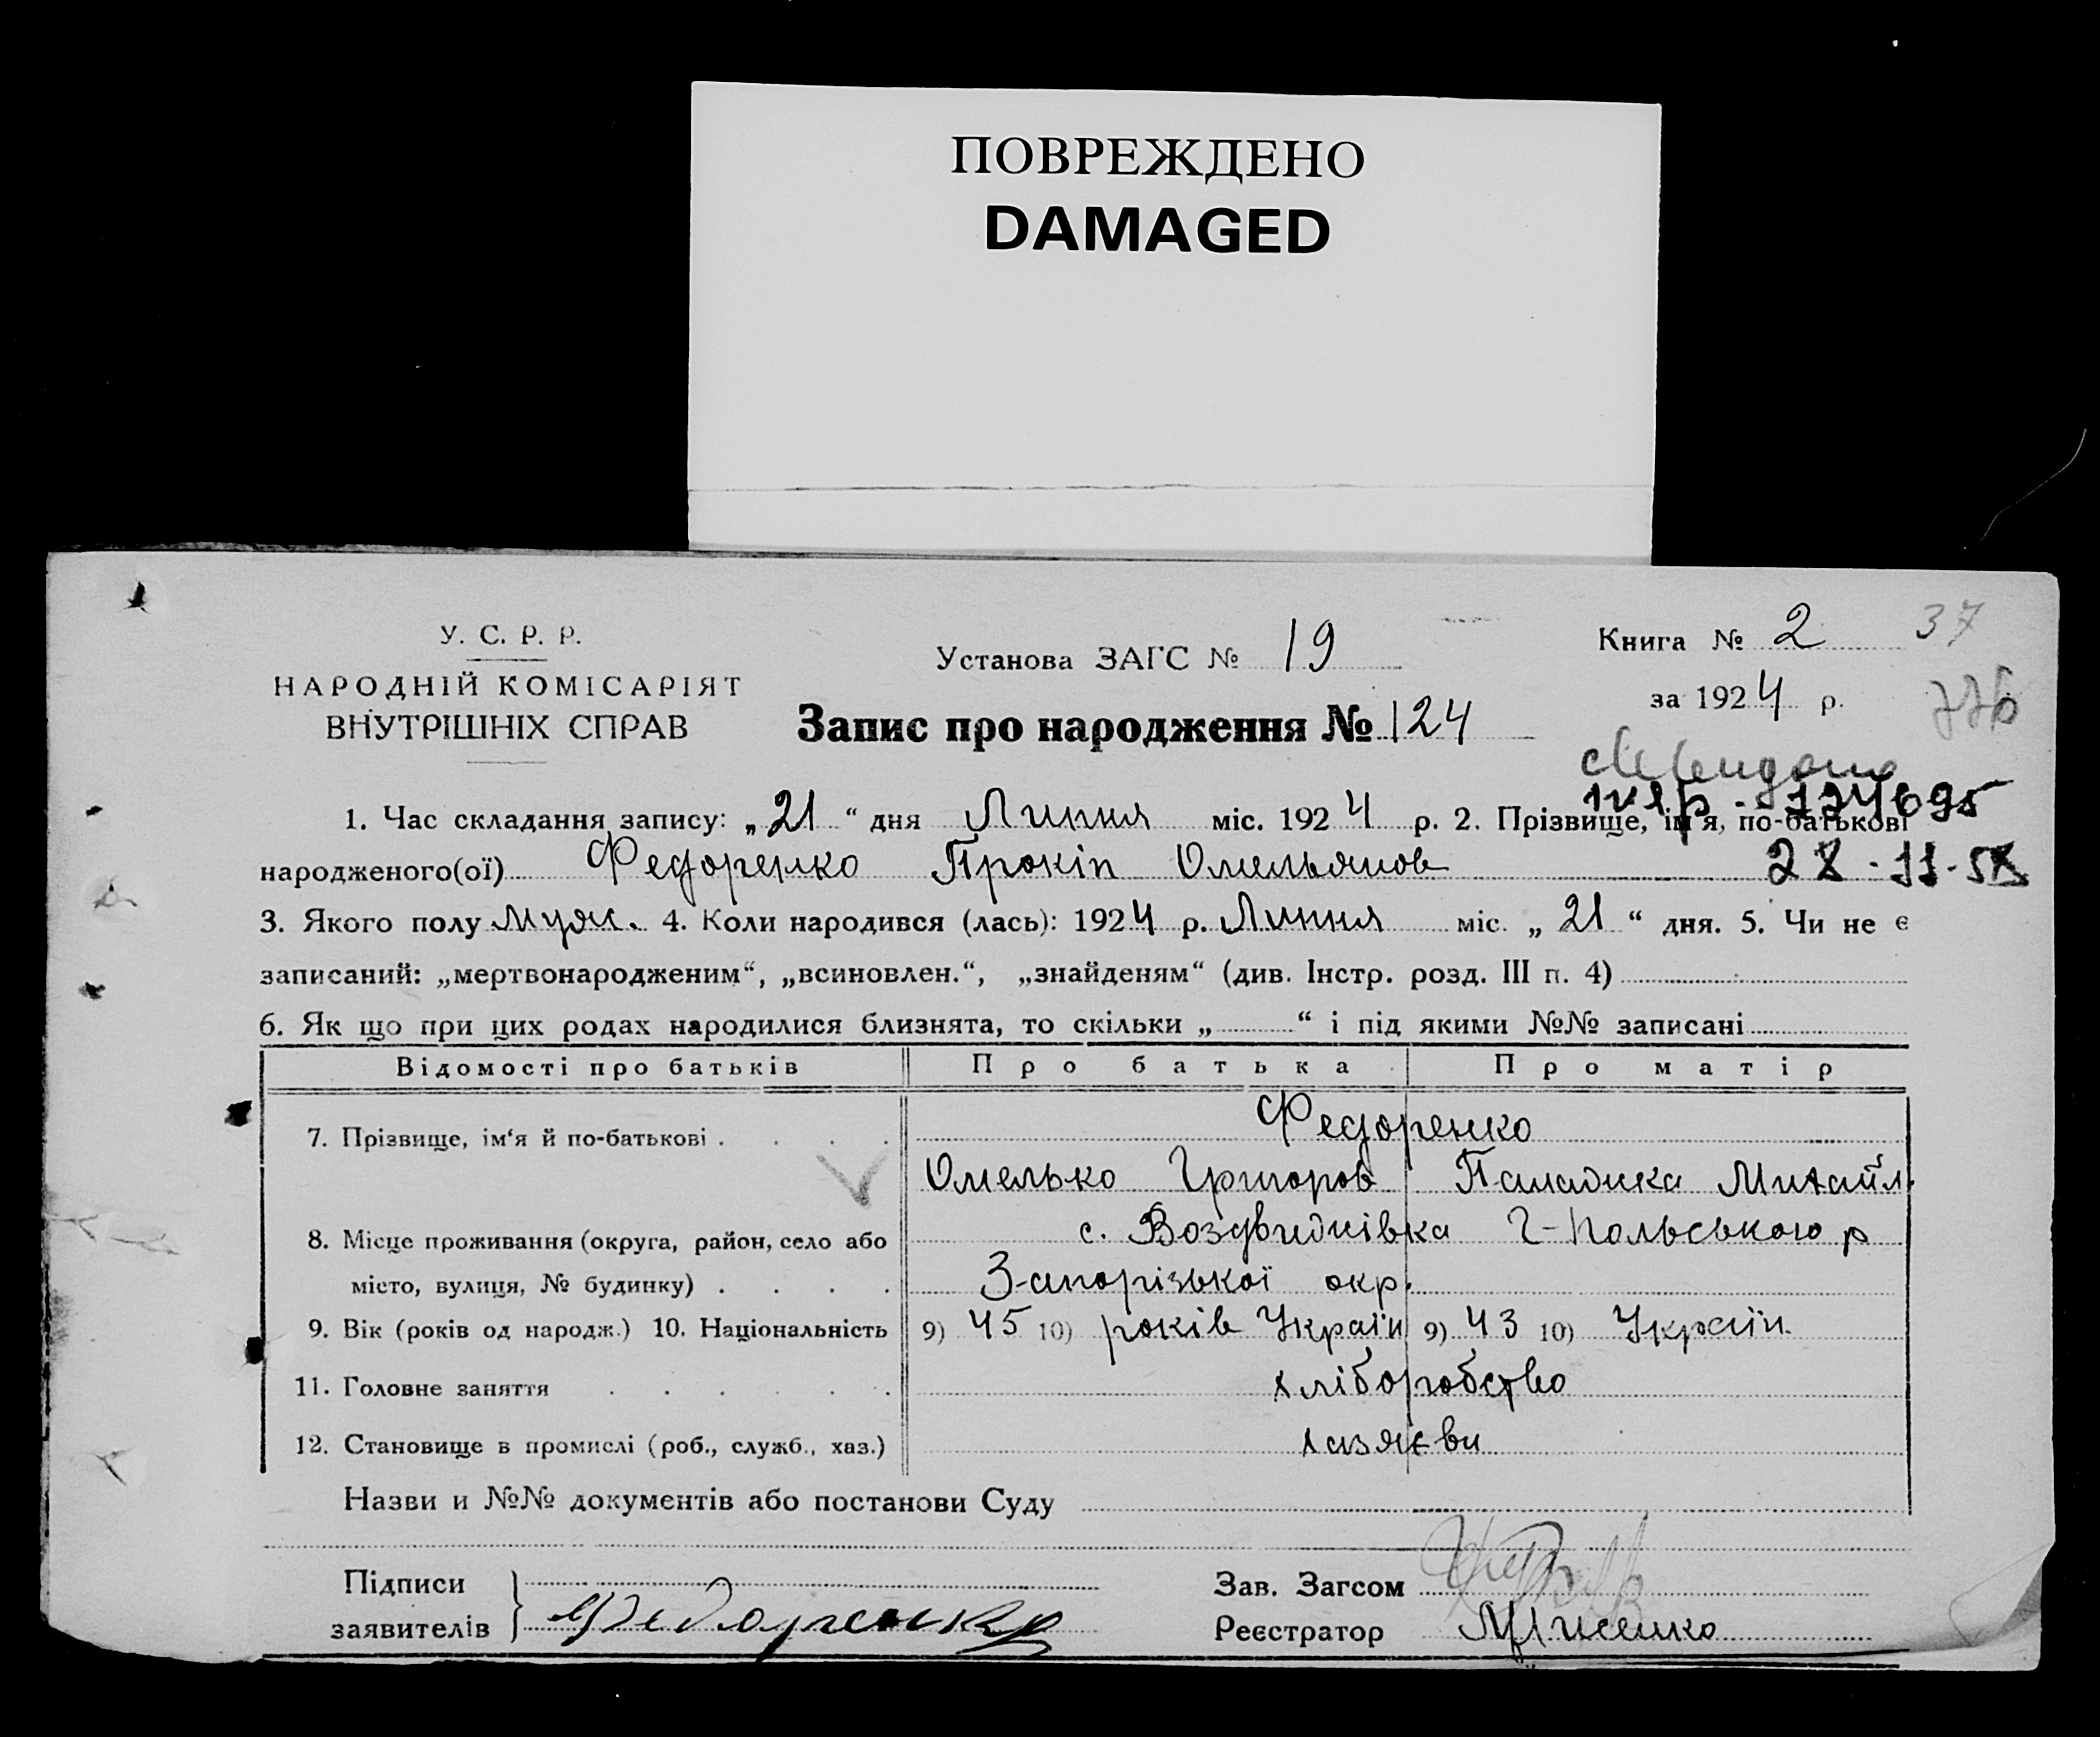 ПОВРЕЖДЕНО
DAMAGED
У. С. Р. Р.
НАРОДНІЙ КОМІСАРІЯТ
ВНУТРІШНІХ СПРАВ
Установа ЗАГС № 19
Книга № 2 37
за 1924 р.
Запис про народження № 124
1. Час складання запису: „21“ дня Липня міс. 1924 р. 2. Прізвище, ім'я, по-батькові
народженого(ої) Федоренко Прокіп Омельянов
3. Якого полу муж. 4. Коли народився (лась): 1924 р. Липня міс. „21“ дня. 5. Чи не є
записаний: „мертвонародженим“, „всиновлен.“, „знайденям“ (див. Інстр. розд. III п. 4)
6. Як що при цих родах народилися близнята, то скільки „ “ і під якими №№ записані
Відомості про батьків Про батька Про матір
7. Прізвище, ім'я й по-батькові . . . . Федоренко
Омелько Григоров Палажка Михайл.
8. Місце проживання (округа, район, село або с. Воздвижнівка Г-Польського р
місто, вулиця, № будинку) . . . . Запорізької окр.
9. Вік (років од народж.) 10. Національність 9) 45 10) років Україн 9) 43 10) Україн.
11. Головне заняття . . . . . . хліборобство
12. Становище в промислі (роб., служб., хаз.) хазяєви
Назви и №№ документів або постанови Суду
Підписи
заявителів Федоренко
Зав. Загсом
Реєстратор Лисенко